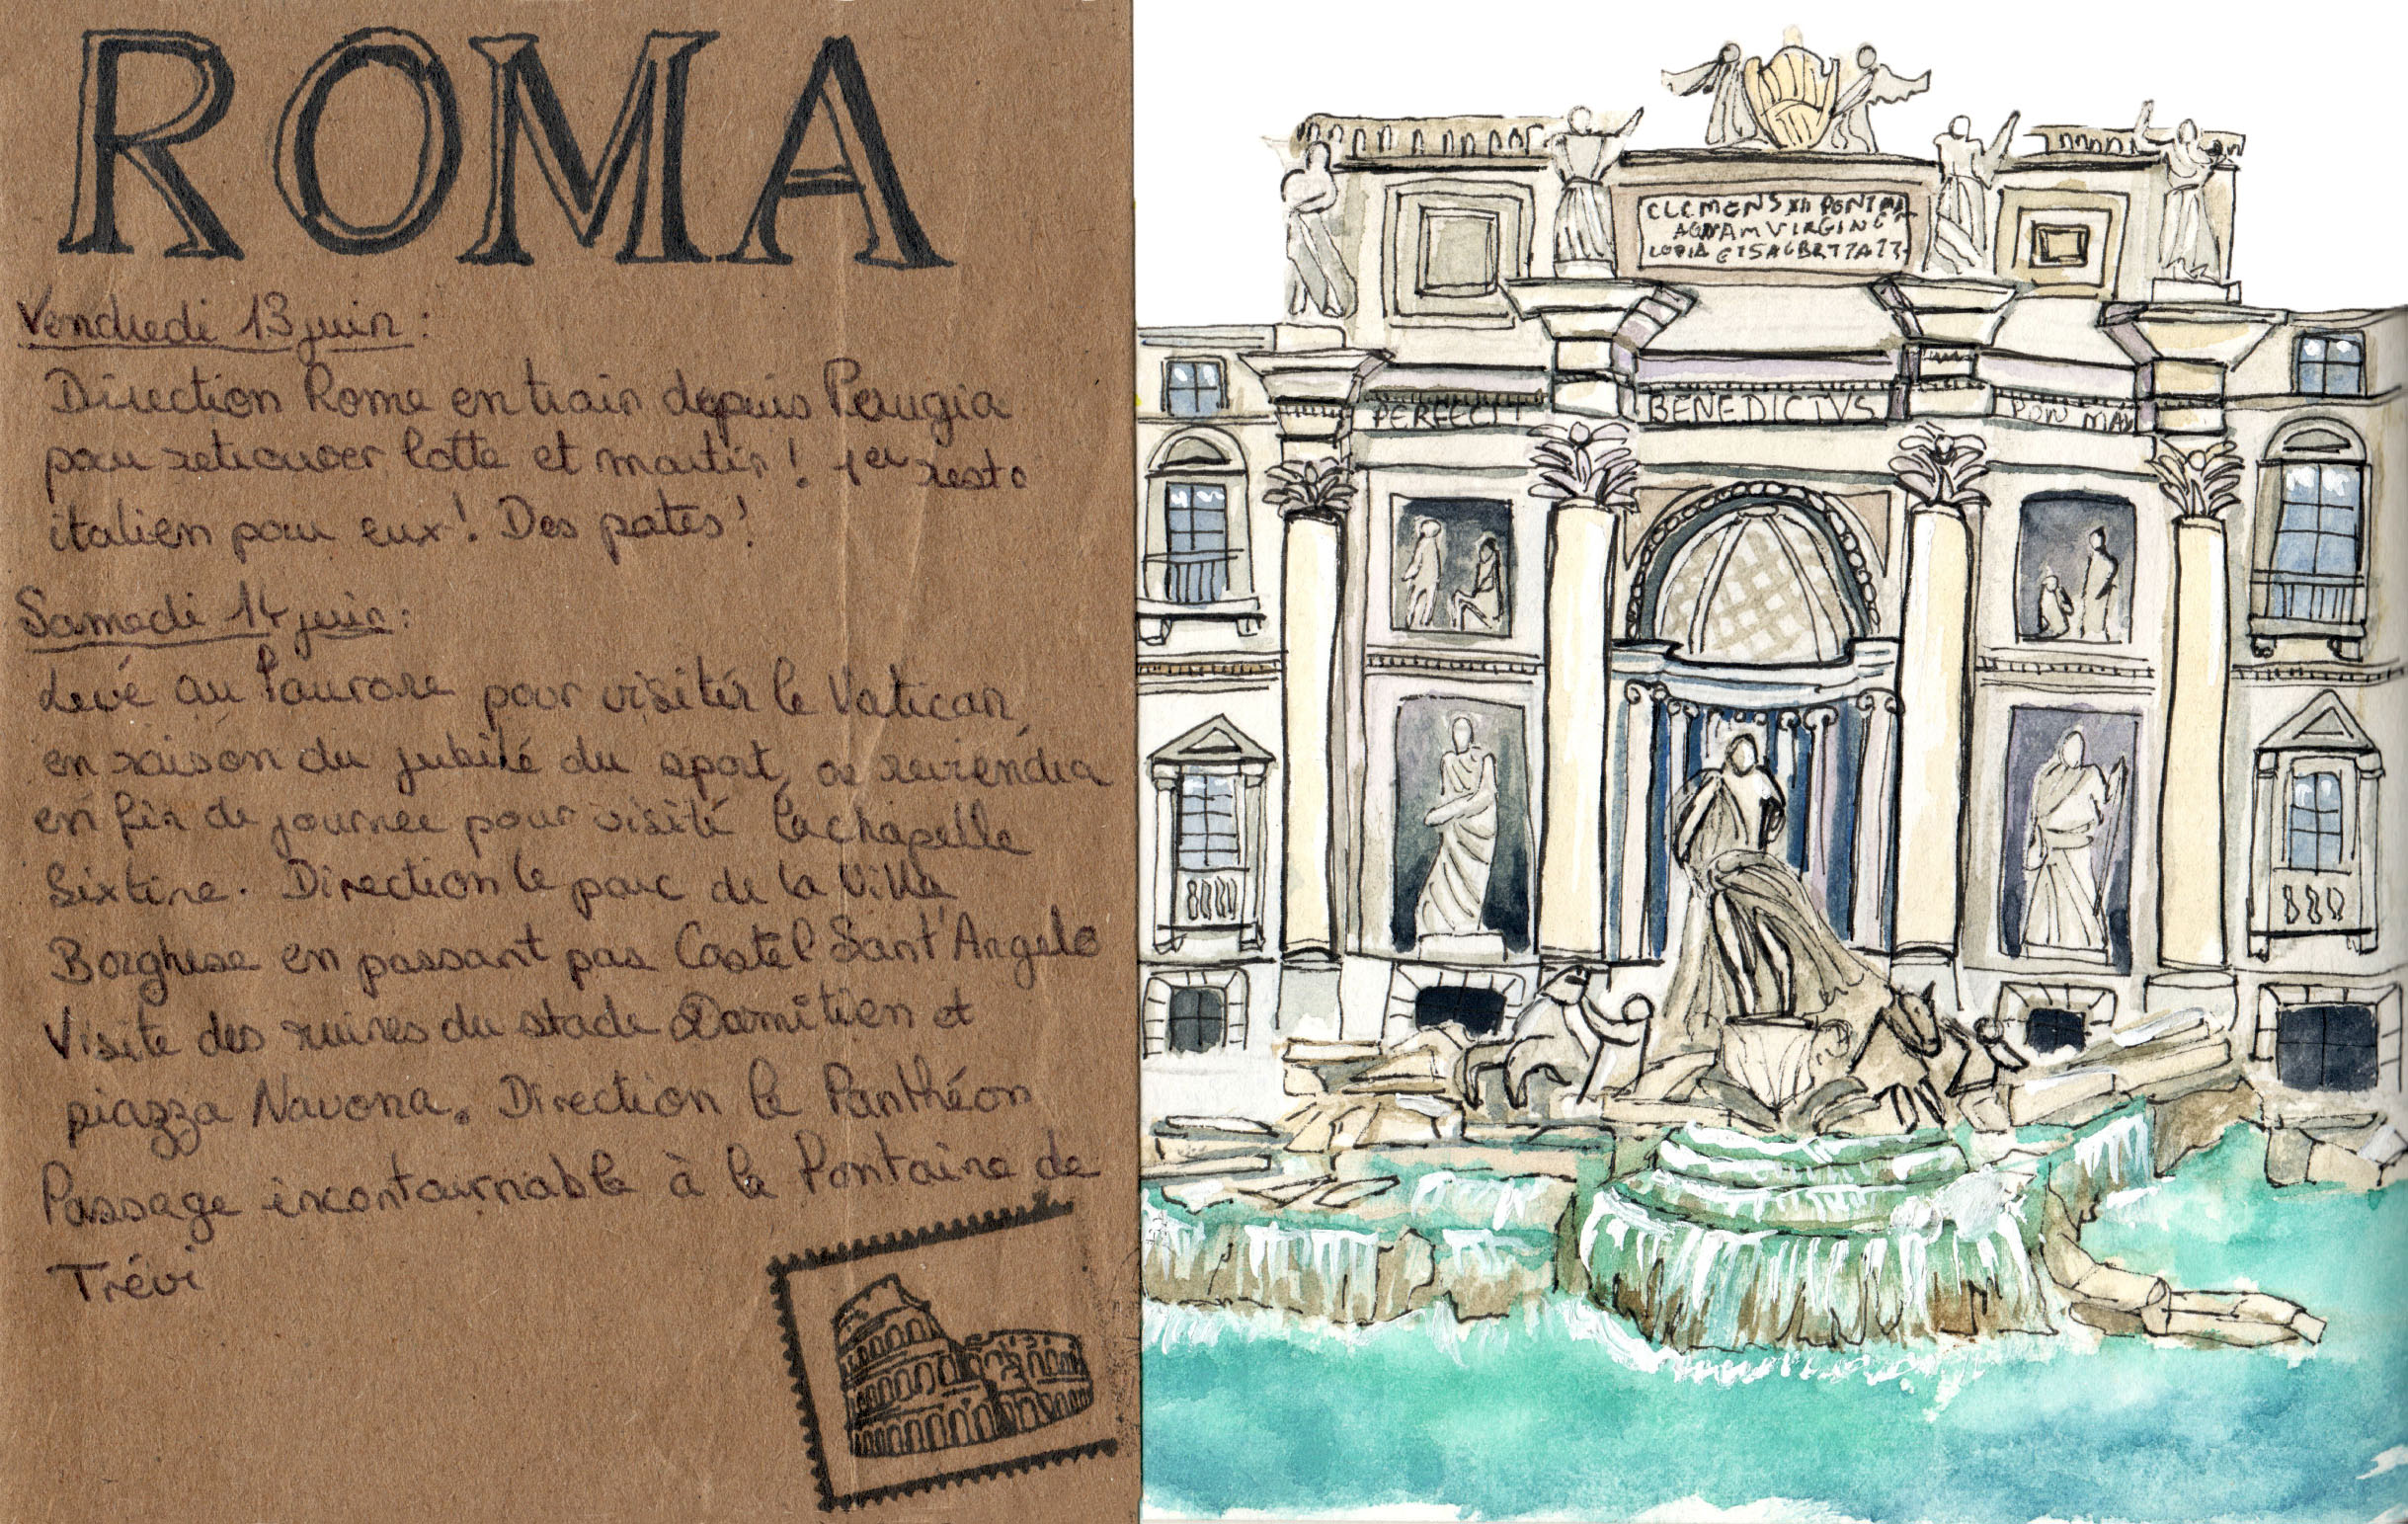 ROMA
Vendredi 13 juin :
Direction Rome en train depuis Perugia
pour retrouver lotte et martin ! 1er resto
italien pour eux ! Des pates !
Samedi 14 juin :
Levé au l'aurore pour visiter le Vatican,
en raison du jubilé du sport, on reviendra
en fin de journee pour visité la chapelle
Sixtine. Direction le parc de la Villa
Borghese en passant par Castel Sant'Angelo
Visite des ruines du stade Domitien et
piazza Navona. Direction le Panthéon
Passage incontournable à la Fontaine de
Trévi
CLEMENS XII PONT MA
AQVAM VIRGINE
COPIA ET SA
PERFECIT
BENEDICTVS
PON MAX